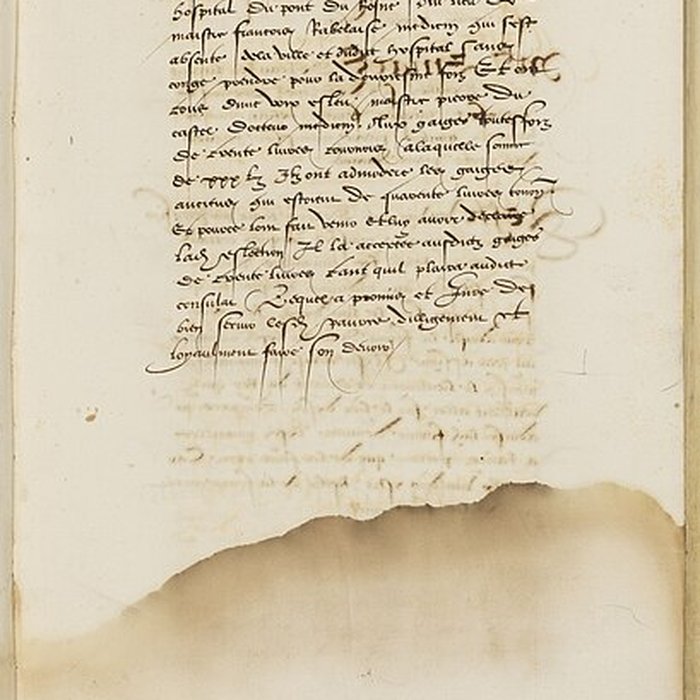 hospital du pont du Rosne
maistre francoys Rabelaise medicin qui sest
absente de la ville et dudit hospital sans
conge prendre pour la deuxiesme foys Et ont
tous dune voix esleu maistre pierre du
castel docteur medicin aux gaiges toutesfoys
de trente livres tournois a laquelle somme
de xxx lt Ilz ont admodere les gaiges
anciens qui estoient de quarante livres tourn
Et pource lont fait venir et luy avoir declaire
lad eslection Il la acceptee ausditz gaiges
de trente livres tant quil plaira audit
consulat Lequel a promis et Jure de
bien servir lesd pauvres dilligemment et
loyaulment faire son devoir